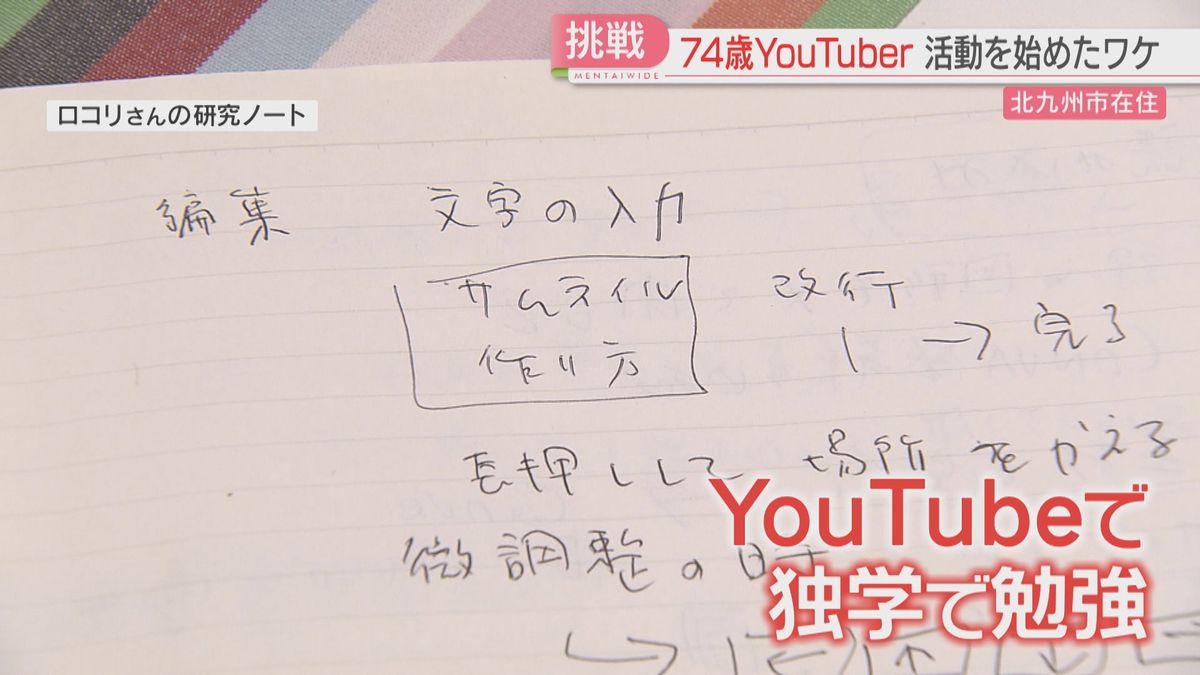 挑戦
MENTAIWIDE
74歳YouTuber 活動を始めたワケ
北九州市在住
ロコリさんの研究ノート
編集 文字の入力
サムネイル 改行
作り方 → 完了
長押しして 場所をかえる
微調整の時
YouTubeで
独学で勉強